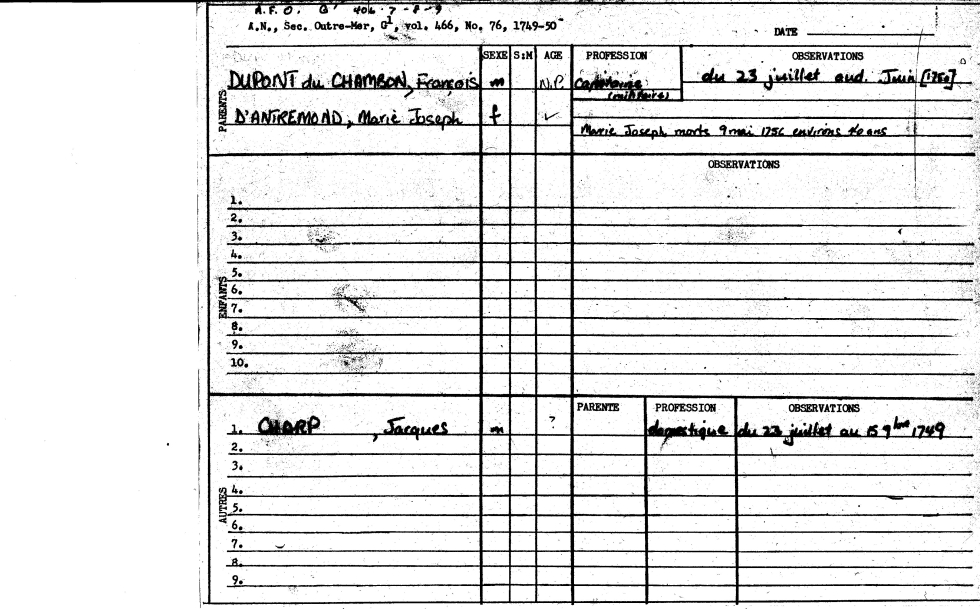 A.F.O. G¹ 406 · 7 - 8 - 9
A.N., Sec. Outre-Mer, G¹, vol. 466, No. 76, 1749-50
DATE
SEXE S:M AGE PROFESSION OBSERVATIONS
PARENTS
DUPONT du CHAMBON, François m N.P. du 23 juillet aud. Juin [1750]
(militaire)
D'ANTREMOND, Marie Joseph f ✓
Marie Joseph morts 9 mai 1756 environs 40 ans
OBSERVATIONS
ENFANTS
1.
2.
3.
4.
5.
6.
7.
8.
9.
10.
PARENTE PROFESSION OBSERVATIONS
AUTRES
1. CHARP, Jacques m ? domestique du 23 juillet au 15 9bre 1749
2.
3.
4.
5.
6.
7.
8.
9.